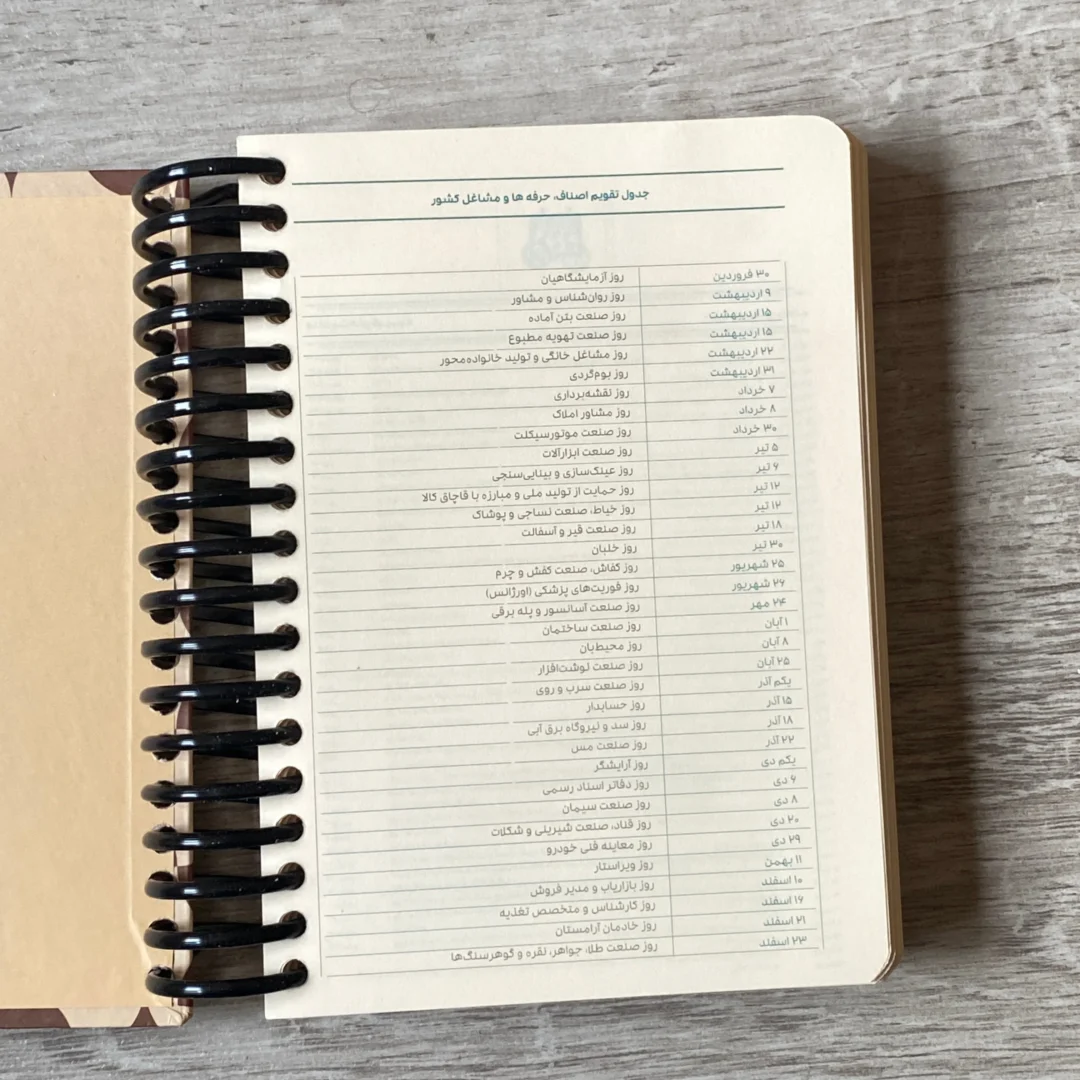 جدول تقویم اصناف، حرفه ها و مشاغل کشور
۳۰ فروردین روز آزمایشگاهیان
۹ اردیبهشت روز روان‌شناس و مشاور
۱۵ اردیبهشت روز صنعت بتن آماده
۱۵ اردیبهشت روز صنعت تهویه مطبوع
۲۲ اردیبهشت روز مشاغل خانگی و تولید خانواده‌محور
۳۱ اردیبهشت روز بوم‌گردی
۷ خرداد روز نقشه‌برداری
۸ خرداد روز مشاور املاک
۳۰ خرداد روز صنعت موتورسیکلت
۵ تیر روز صنعت ابزارآلات
۶ تیر روز عینک‌سازی و بینایی‌سنجی
۱۲ تیر روز حمایت از تولید ملی و مبارزه با قاچاق کالا
۱۲ تیر روز خیاط، صنعت نساجی و پوشاک
۱۸ تیر روز صنعت قیر و آسفالت
۳۰ تیر روز خلبان
۲۵ شهریور روز کفاش، صنعت کفش و چرم
۲۶ شهریور روز فوریت‌های پزشکی (اورژانس)
۲۴ مهر روز صنعت آسانسور و پله برقی
۱ آبان روز صنعت ساختمان
۸ آبان روز محیط‌بان
۲۵ آبان روز صنعت نوشت‌افزار
یکم آذر روز صنعت سرب و روی
۱۵ آذر روز حسابدار
۱۸ آذر روز سد و نیروگاه برق آبی
۲۲ آذر روز صنعت مس
یکم دی روز آرایشگر
۶ دی روز دفاتر اسناد رسمی
۸ دی روز صنعت سیمان
۲۰ دی روز قناد، صنعت شیرینی و شکلات
۲۹ دی روز معاینه فنی خودرو
۱۱ بهمن روز ویراستار
۱۰ اسفند روز بازاریاب و مدیر فروش
۱۶ اسفند روز کارشناس و متخصص تغذیه
۲۱ اسفند روز خادمان آرامستان
۲۳ اسفند روز صنعت طلا، جواهر، نقره و گوهرسنگ‌ها